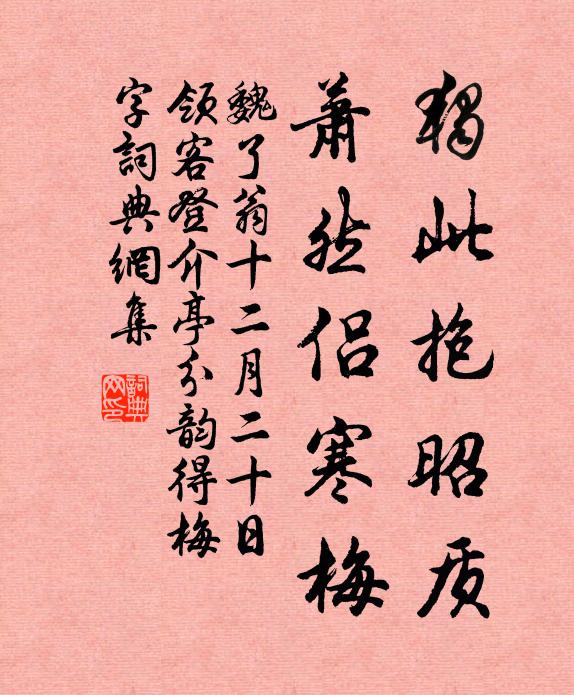 獨此抱昭质
萧然侣寒梅
魏了翁十二月二十日
领客登介亭分韵得梅
字词典網集
詞典
网印